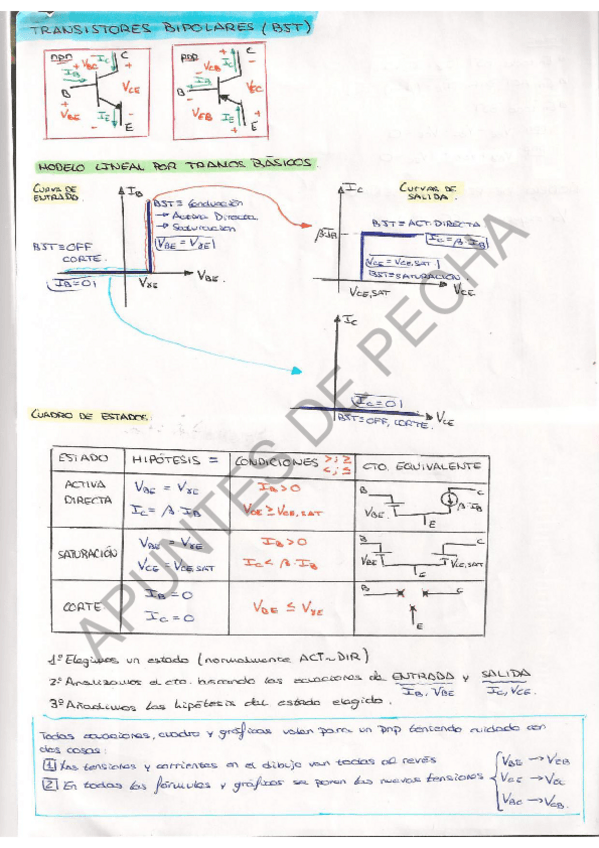 TRANSISTORES BIPOLARES (BJT)
npn
B
C
E
IB
IC
IE
VBC
VCE
VBE
+
-
pnp
B
C
E
IB
IC
IE
VCB
VEC
VEB
+
-
MODELO LINEAL POR TRAMOS BÁSICOS.
CURVA DE ENTRADA
IB
BJT = Conducción
→ Activa Directa
→ Saturación
VBE = VγE
BJT = OFF
CORTE.
IB = 0
VγE
VBE.
CURVAS DE SALIDA.
IC
BJT = ACT. DIRECTA
β·IB
IC = β·IB
VCE = VCE,SAT
BJT = SATURACIÓN.
VCE,SAT
VCE
IC
IC = 0
VCE
BJT = OFF, CORTE.
CUADRO DE ESTADOS:
ESTADO HIPÓTESIS = CONDICIONES >; ≥ <; ≤ CTO. EQUIVALENTE
ACTIVA DIRECTA
VBE = VγE
IC = β·IB
IB > 0
VCE ≥ VCE,SAT
B
C
VBE
β·IB
E
SATURACIÓN
VBE = VγE
VCE = VCE,SAT
IB > 0
IC < β·IB
B
C
VBE
VCE,SAT
E
CORTE
IB = 0
IC = 0
VBE ≤ VγE
B
C
E
1º Elegimos un estado (normalmente ACT~DIR)
2º Analizamos el cto. buscando las ecuaciones de ENTRADA y SALIDA
IB, VBE
IC, VCE.
3º Añadimos las hipótesis del estado elegido.
Todas ecuaciones, cuadro y gráficas valen para un pnp teniendo cuidado con
dos cosas:
1 Las tensiones y corrientes en el dibujo van todas al revés
2 En todas las fórmulas y gráficas se ponen las nuevas tensiones
VBE → VEB
VCE → VEC
VBC → VCB.
APUNTES DE PECHA